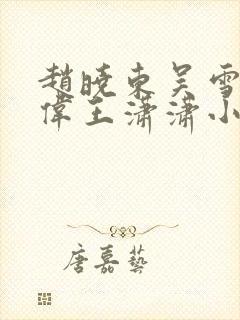 趙曉東吴雪
偉王瀟瀟小
唐嘉藝